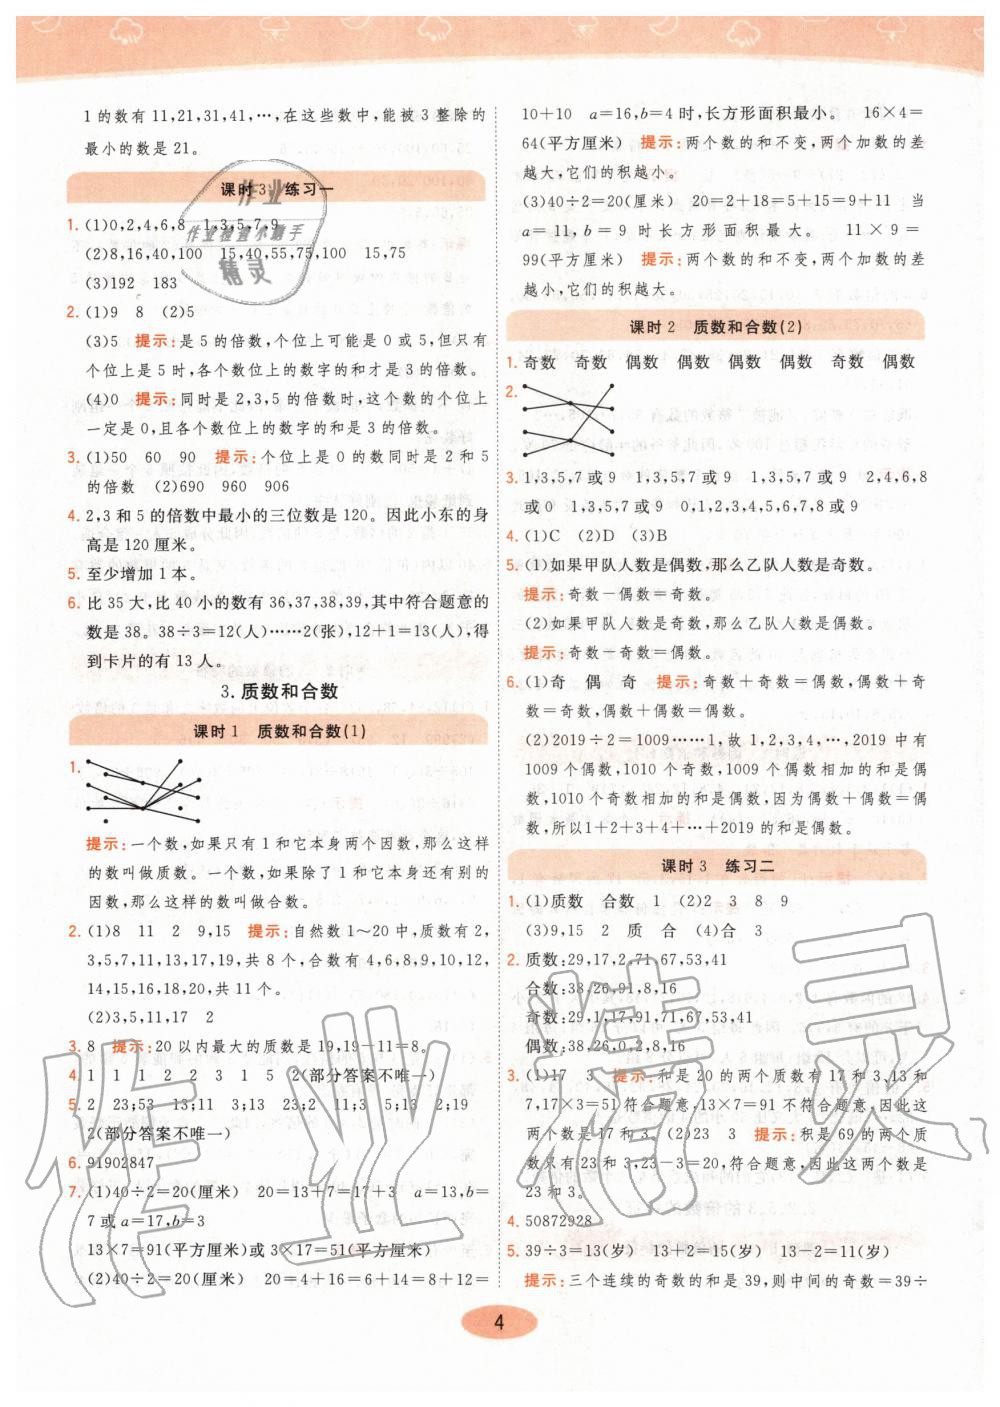 1的数有11,21,31,41,…,在这些数中,能被3整除的
最小的数是21。
课时3 练习一
1. (1)0,2,4,6,8 1,3,5,7,9
(2)8,16,40,100 15,40,55,75,100 15,75
(3)192 183
2. (1)9 8 (2)5
(3)5 提示:是5的倍数,个位上可能是0或5,但只有
个位上是5时,各个数位上的数字的和才是3的倍数。
(4)0 提示:同时是2,3,5的倍数时,这个数的个位上
一定是0,且各个数位上的数字的和是3的倍数。
3. (1)50 60 90 提示:个位上是0的数同时是2和5
的倍数 (2)690 960 906
4. 2,3和5的倍数中最小的三位数是120。因此小东的身
高是120厘米。
5. 至少增加1本。
6. 比35大,比40小的数有36,37,38,39,其中符合题意的
数是38。38÷3=12(人)……2(张),12+1=13(人),得
到卡片的有13人。
3. 质数和合数
课时1 质数和合数(1)
1.
提示:一个数,如果只有1和它本身两个因数,那么这样
的数叫做质数。一个数,如果除了1和它本身还有别的
因数,那么这样的数叫做合数。
2. (1)8 11 2 9,15 提示:自然数1~20中,质数有2,
3,5,7,11,13,17,19,共8个,合数有4,6,8,9,10,12,
14,15,16,18,20,共11个。
(2)3,5,11,17 2
3. 8 提示:20以内最大的质数是19,19-11=8。
4. 1 1 1 2 2 3 1 5 2(部分答案不唯一)
5. 2 23;53 13;11 3;2 13;11 3;5 19;2 19
2(部分答案不唯一)
6. 91902847
7. (1)40÷2=20(厘米) 20=13+7=17+3 a=13,b=
7或a=17,b=3
13×7=91(平方厘米)或3×17=51(平方厘米)
(2)40÷2=20(厘米) 20=4+16=6+14=8+12=
10+10 a=16,b=4时,长方形面积最小。 16×4=
64(平方厘米) 提示:两个数的和不变,两个加数的差
越大,它们的积越小。
(3)40÷2=20(厘米) 20=2+18=5+15=9+11 当
a=11,b=9时长方形面积最大。 11×9=
99(平方厘米) 提示:两个数的和不变,两个加数的差
越小,它们的积越大。
课时2 质数和合数(2)
1. 奇数 奇数 偶数 偶数 偶数 偶数 奇数 偶数
2.
3. 1,3,5,7或9 1,3,5,7或9 1,3,5,7或9 2,4,6,8
或0 1,3,5,7或9 0,1,2,3,4,5,6,7,8或9
4. (1)C (2)D (3)B
5. (1)如果甲队人数是偶数,那么乙队人数是奇数。
提示:奇数-偶数=奇数。
(2)如果甲队人数是奇数,那么乙队人数是偶数。
提示:奇数-奇数=偶数。
6. (1)奇 偶 奇 提示:奇数+奇数=偶数,偶数+奇
数=奇数,偶数+偶数=偶数。
(2)2019÷2=1009……1,故1,2,3,4,…,2019中有
1009个偶数,1010个奇数,1009个偶数相加的和是偶
数,1010个奇数相加的和是偶数,因为偶数+偶数=偶
数,所以1+2+3+4+…+2019的和是偶数。
课时3 练习二
1. (1)质数 合数 1 (2)2 3 8 9
(3)9,15 2 质 合 (4)合 3
2. 质数:29,17,2,71,67,53,41
合数:38,26,91,8,16
奇数:29,1,17,91,71,67,53,41
偶数:38,26,0,2,8,16
3. (1)17 3 提示:和是20的两个质数有17和3,13和
7,17×3=51符合题意,13×7=91不符合题意,因此这
两个数是17和3。(2)23 3 提示:积是69的两个质
数只有23和3,23-3=20,符合题意,因此这两个数是
23和3。
4. 50872928
5. 39÷3=13(岁) 13+2=15(岁) 13-2=11(岁)
提示:三个连续的奇数的和是39,则中间的奇数=39÷
4
作业
作业检查小助手
精灵
作业精灵